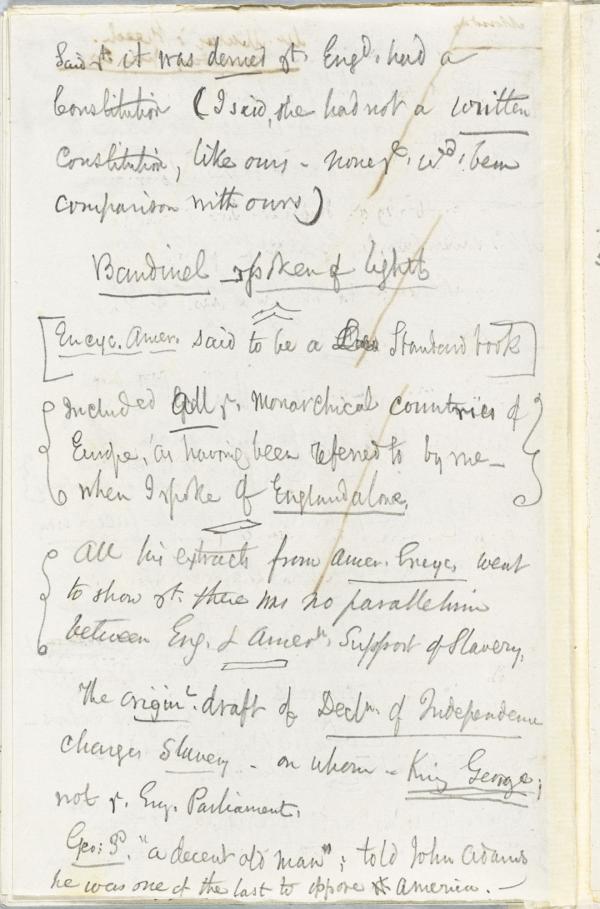 Said yt. it was denied yt. Engd. had a
Constitution (I said, she had not a written
Constitution, like ours - none yt. wd. bear
comparison with ours)
Bandinel spoken of lightly
[Encyc. Amer. said to be a Standard book]
{Included all ye. monarchical countries of
Europe, as having been referred to by me -
when I spoke of England alone.}
{All his extracts from Amer. Encyc. went
to show yt. there was no parallelism
between Eng. & Amern. Support of Slavery.
The originl. draft of Decln. of Independence
charges Slavery - on whom - King George;
not ye. Eng. Parliament.
Geo: 3d. "a decent old man"; told John Adams
he was one of the last to oppose America. -